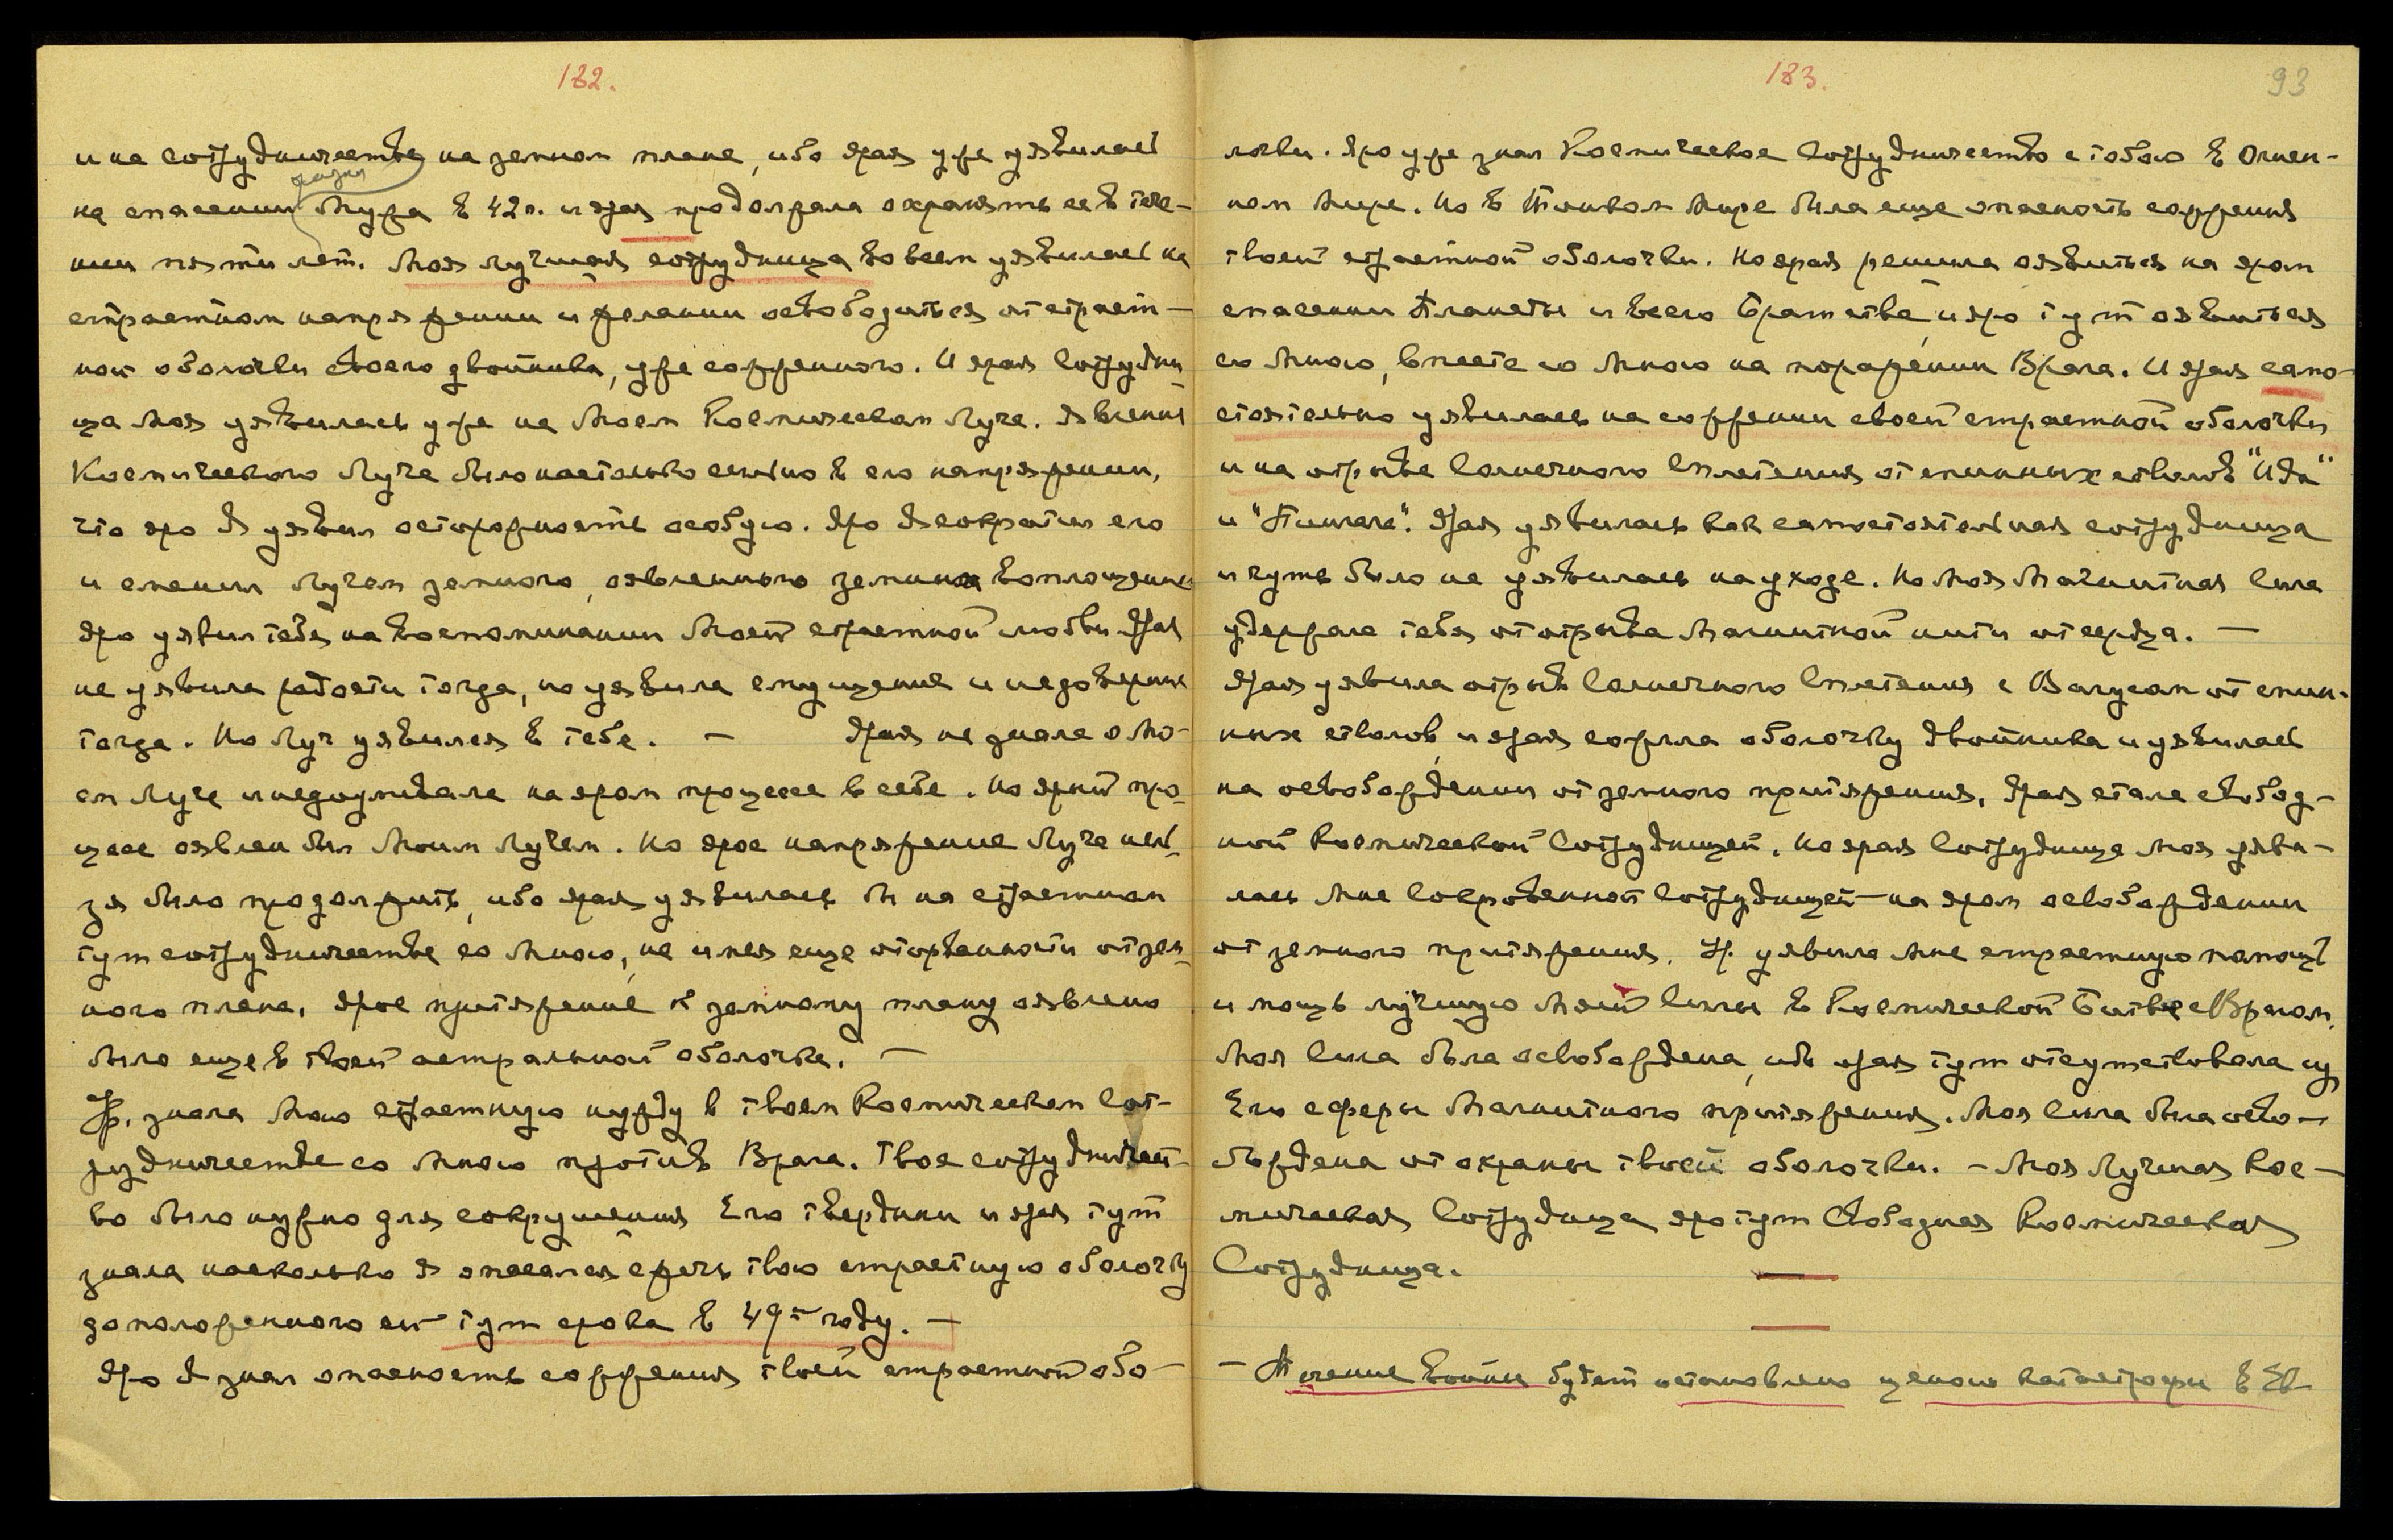 182.
и на сотрудничестве на земном плане, ибо ярая уже уявилась
на спасении жизни Мужа в 42 г. и ярая продолжала охранять ее в тече-
нии пяти лет. Моя лучшая сотрудница во всем уявилась на
страстном напряжении и желании освободиться от страст-
ной оболочки своего двойника, уже сожженного. И ярая Сотрудни-
ца Моя уявилась уже на Моем Космическом Луче. Явление
Космического Луча было настолько сильно в его напряжении,
что яро Я уявил осторожность особую. Яро Я сократил его
и сменил Лучом земного, оявленного земного воплощения
Яро уявил тебя на воспоминании Моей страстной любви. Ярая
не уявила радости тогда, но уявила смущение и недоверие
тогда. Но Луч уявился в тебе. — Ярая не знала о Мо-
ем Луче и недоумевала на яром процессе в себе. Но ярый про-
цесс оявлен был Моим Лучом. Но ярое напряжение Луча нель-
зя было продолжить, ибо ярая уявилась бы на страстном
тут сотрудничестве со Мною, не имея еще оторванности от зем-
ного плана. Ярое притяжение к земному плану оявлено
было еще в твоей астральной оболочке. —
Ур. знала Мою страстную нужду в твоем Космическом Сот-
рудничестве со Мною против Врага. Твое сотрудничест-
во было нужно для сокрушения Его твердыни и ярая тут
знала насколько Я опасался сжечь твою страстную оболочку
до положенного ей тут срока в 49-м году. —
Яро Я знал опасность сожжения твоей страстной обо-
183.
93
лочки. Яро уже знал Космическое Сотрудничество с тобою в Огнен-
ном Мире. Но в Тонком Мире была еще опасность сожжения
твоей страстной оболочки. Но ярая решила оявиться на яром
спасении Планеты и всего Братства, и яро тут оявиться
со Мною, вместе со Мною на поражении Врага. И ярая само-
стоятельно уявилась на сожжении своей страстной оболочки
и на отрыве Солнечного Сплетения от спинных стволов "Ида"
и "Пингала". Ярая уявилась как самостоятельная сотрудница
и чуть было не уявилась на уходе. Но Моя Магнитная Сила
удержала тебя от отрыва Магнитной нити от сердца. —
Ярая уявила отрыв Солнечного Сплетения с Вагусом от спин-
ных стволов, и ярая сожгла оболочку двойника и уявилась
на освобождении от земного притяжения. Ярая стала свобод-
ной Космической Сотрудницей. Но ярая Сотрудница Моя уяви-
лась Мне Сокровенной Сотрудницей на яром освобождении
от земного притяжения. Ур. уявила Мне страстную помощь
и мощь лучшую Моей Силы в Космической Битве с Врагом.
Моя Сила была освобождена, ибо ярая тут отсутствовала из
Его сферы Магнитного притяжения. Моя Сила была осво-
бождена от охраны твоей оболочки. — Моя Лучшая Кос-
мическая Сотрудница яро тут Свободная Космическая
Сотрудница.
— Течение войны будет остановлено ценою катастрофы в Ев-